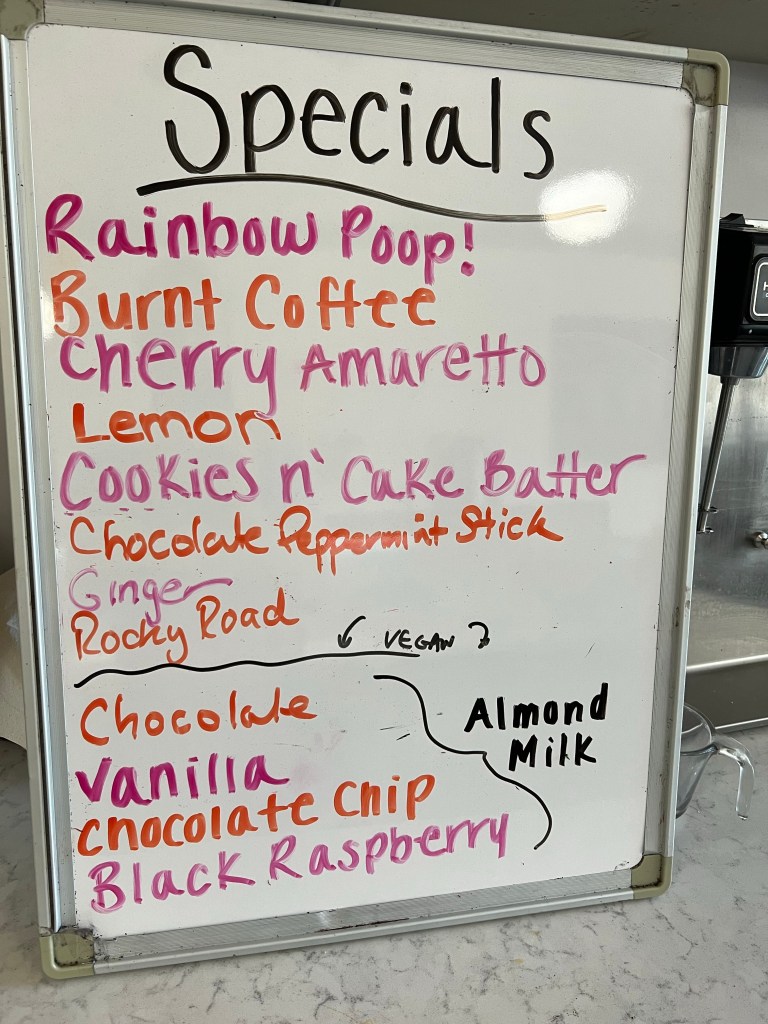 Specials
Rainbow Poop!
Burnt Coffee
Cherry Amaretto
Lemon
Cookies n' Cake Batter
Chocolate Peppermint Stick
Ginger
Rocky Road
VEGAN
Chocolate
Almond
Milk
Vanilla
chocolate chip
Black Raspberry